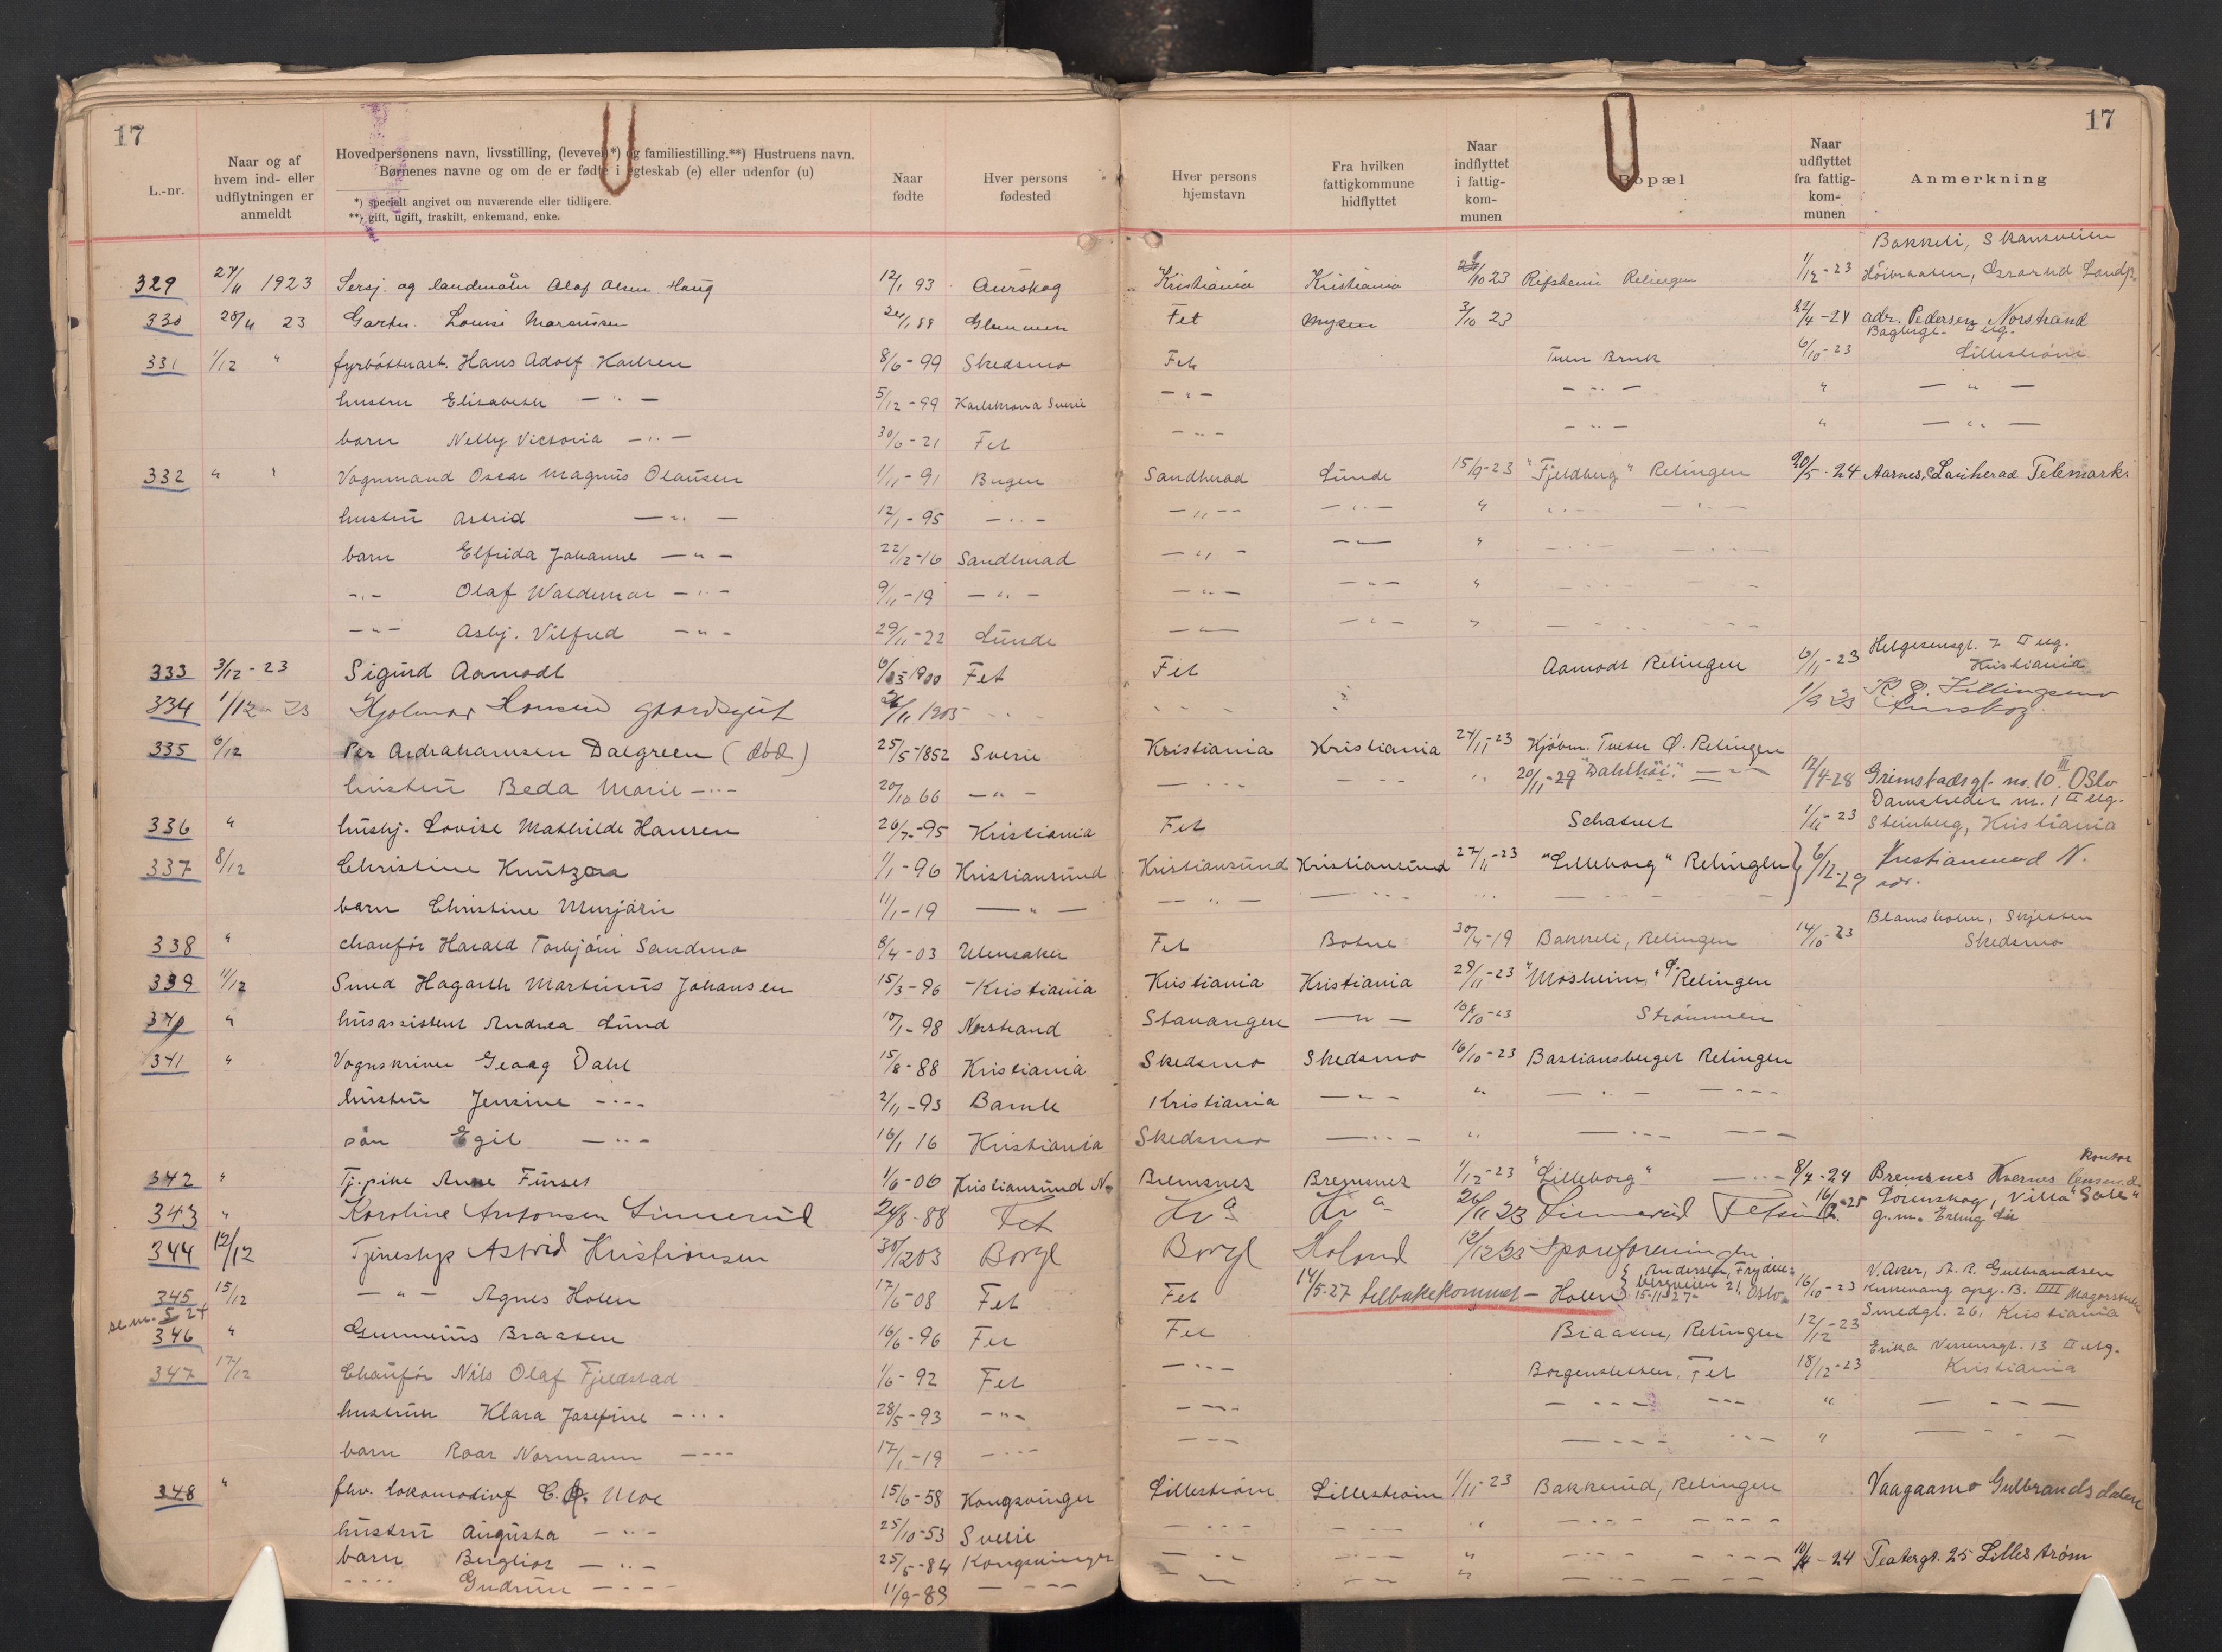 17
17
L.-nr.
Naar og af hvem ind- eller udflytningen er anmeldt
Hovedpersonens navn, livsstilling, (levevei*) og familiestilling.**) Hustruens navn.
Børnenes navne og om de er fødte i egteskab (e) eller udenfor (u)
*) specielt angivet om nuværende eller tidligere.
**) gift, ugift, fraskilt, enkemand, enke.
Naar fødte
Hver persons fødested
Hver persons hjemstavn
Fra hvilken fattigkommune hidflyttet
Naar indflyttet i fattigkommunen
Bopæl
Naar udflyttet fra fattigkommunen
Anmerkning
Bakkeli, Skansveien
329 27/11 1923 Sersj. og landmåler Olaf Olsen Haug 12/1 93 Aurskog Kristiania Kristiania 10 23 Relingen 1/12-23
330 28/11 23 Gartn. Louise Marcussen 24/1 88 Glemmen Fet Mysen 3/10 23 22/4-24 adr. Pedersen Norstrand
331 1/12 " fyrbøtterast. Hans Adolf Karlsen 8/6-99 Skedsmo Fet Tuen Bruk 6/10-23 Lillestrøm
hustru Elisabeth - " - 5/12-99 Karlskrona Sverie - " - - " - " - " -
barn Nelly Victoria - " - 30/6-21 Fet - " - - " - " - " -
332 " " Vognmand Oscar Magnus Olausen 1/11-91 Bugen Sandherad Lunde 15/9-23 "Fjeldberg" Relingen 20/5-24 Aarnes, Telemark
hustru Astrid - " - 12/1-95 - " - - " - - " - "
barn Elfrida Johanne - " - 22/12-16 Sandherad - " - - " - "
- " - Olaf Waldemar - " - 9/11-19 - " - - " - - " - "
- " - Asbj. Vilfred - " - 29/11-22 Lunde - " - - " - "
Helgesensgt. 7 II etg.
333 3/12-23 Sigurd Aamodt 1900 Fet Fet Aamodt Relingen 6/11-23 Kristiania
334 1/12-23 Hjalmar Hansen gaardsgut 11 1905 1/9 23 Aurskog.
335 6/12 Per Abrahamsen Dalgreen (død) 25/5-1852 Sverie Kristiania Kristiania 24/11-23 Kjøbm. Tveter Ø. Relingen
hustru Beda Marie - " - 20/10 66 - " - 20/11-29 "Dahlhøi" - " - 12/4-28 Grimstadsgt. no. 10 III Oslo
Damstredet nr. 1 II etg.
336 " husbj. Lovise Mathilde Hansen 26/7-95 Kristiania Fet 1/11-23 Steinberg, Kristiania
337 8/12 Christine Knutzen 1/1-96 Kristiansund Kristiansund Kristiansund 27/11-23 "Lilleborg" Relingen 6/12-29 Kristiansund N.
barn Christine Murjårie 11/1-19 - " - - " - - " -
338 " chaufør Harald Torbjørn Sandmo 8/4-03 Ullensaker Fet Botne 30/4-19 Bakkeli, Relingen 14/10-23 Skjetten
Skedsmo
339 11/12 Smed Hagarth Martinius Johansen 15/3-96 Kristiania Kristiania Kristiania 29/11-23 "Mosheim" Ø. Relingen
340 " husassistent Andrea Lund 10/1-98 Norstrand Stavanger - " - 10/10-23 Strømmen
341 " Vognskriver Georg Dahl 15/8-88 Kristiania Skedsmo Skedsmo 16/10-23 Bastiansberget Relingen
hustru Jensine - " - 2/11-93 Bamle Kristiania - " - " - " -
søn Egil - " - 16/1 16 Kristiania Skedsmo - " - " - " -
342 " Tj.pike Anne Furset 1/6-06 Kristiansund N. Bremsnes Bremsnes 1/12-23 "Lilleborg" - " - 8/4-24 Bremsnes Kvernes kontor
343 " Karoline Antonsen Linnerud 24/8-88 Fet Kra Kra 26/11 23 Linnerud Fetsund 16/2-25 Lørenskog, Villa "Sole"
g.m. Erling
344 12/12 Tjenestyp Astrid Kristiansen 30/12 03 Borge Borge Høland 12/12 23 Spareforeningen
345 15/12 - " - Agnes Holen 17/6-08 Fet Fet 14/5-27 tilbakekommet - Holen Andersen, 21, Oslo 15-11-27 16/10-23 V. Aker, A. R. Gulbrandsen
se nr. 5 24
346 " Gunnerius Braaten 16/6-96 Fet Fet Braaten, Relingen 12/12-23 Smedgt. 26, Kristiania
347 17/12 Chaufør Nils Olaf Fjeldstad 1/6-92 Fet - " - Borgensletten, Fet 18/12-23 13 II etg. Kristiania
hustrun Klara Josefine - " - 28/5-93 - " - - " - - " - "
barn Roar Normann - " - 17/1-19 - " - - " - - " - "
348 " fhv. lokomotivf C. O. Moe 15/6-58 Kongsvinger Lillestrøm Lillestrøm 1/11-23 Bakkerud, Relingen Vaagaamo Gulbrandsdalen
hustru Augusta - " - 25/10-53 Sverie - " - - " - " - " -
barn Bergliot - " - 25/5-84 Kongsvinger - " - - " - " - " - 10/4-24 Teatergt. 25 Lillestrøm
- " - Gudrun - " - 11/9-89 - " - - " - - " - "